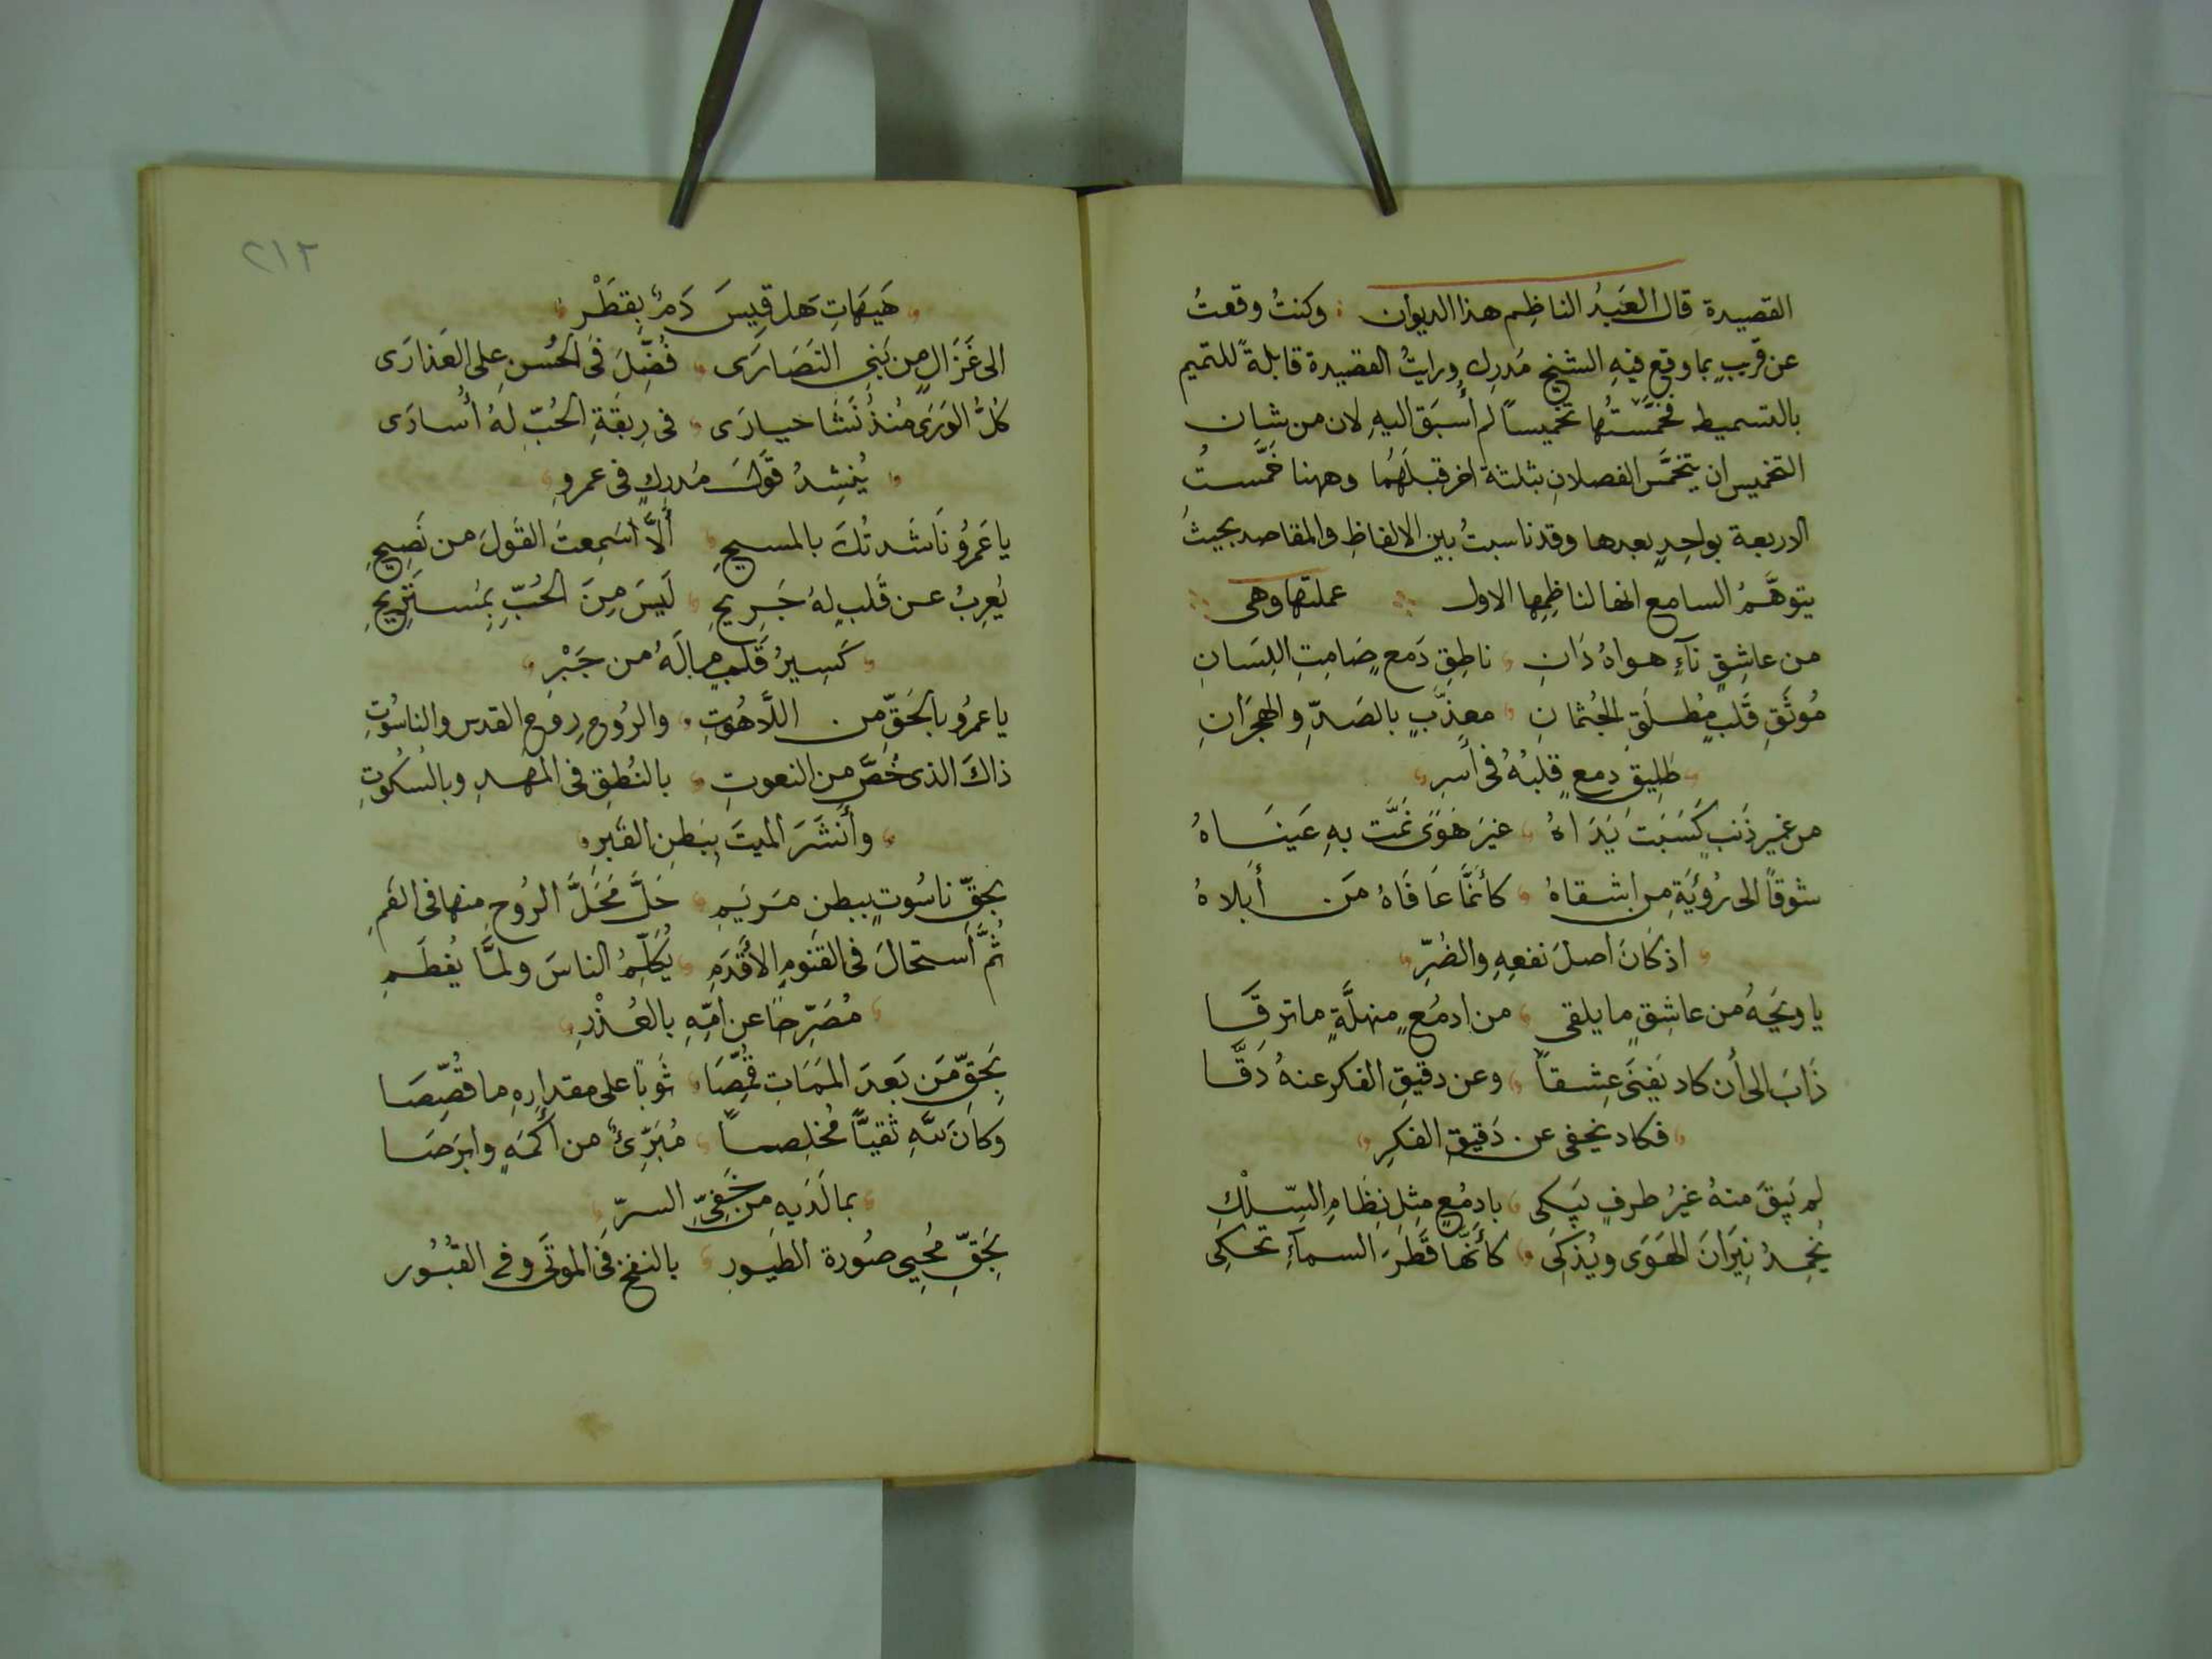 القصيدة قال العَبدُ الناظِم هذا الديوان : وكنتُ وقعتُ
عن قربٍ بما وقع فيهِ الشيخ مَدرِك ورايتُ القصيدة قابلةً للتميم
بالتسميط فخمَّستُها تخميسًا لم أُسبَق اليهِ لان من شان
التخميس ان يتخمَّس الفصلانِ بثلثة اخر قبلَهُما وههنا خَمَّستُ
الاربعة بواحِدٍ بعدها وقد ناسبتُ بين الالفاظِ والمقاصد بحيثُ
يتوهَّمُ السامع انها لناظِمِها الاول عملتها وهى
من عاشِقٍ نآءٍ هواهُ دَانِ ، ناطِقِ دَمعٍ صَامِتِ اللِسَانِ
مُوثَقِ قَلبٍ مُطلَقِ الجُثمانِ ، معذَّبٍ بالصَدِّ والهِجرَانِ
طَلِيقِ دمعٍ قلبُهُ فى أسرِ
من غيرِ ذَنبٍ كَسَبَت يَدَاهُ ، غيرَ هَوًى نَمَّت بهِ عَينَاهُ
شوقًا الى رُؤيَةِ من اشقاهُ ، كأنمَّا عَافَاهُ مَن أَبلاهُ
اذ كَانَ اصلَ نفعِهِ والضُرِّ
يا ويحَهُ من عاشِقٍ ما يلقى ، من ادمُعٍ منهلَّةٍ ما ترقَا
ذَابَ الى أن كاد يَفنَى عِشقًا ، وعن دقيقِ الفكر عنهُ دَقَّا
فكاد يخفى عن دَقيقِ الفكرِ
لم يَبقَ منهُ غيرُ طرفٍ يَبكى ، بادمُعٍ مِثلِ نِظَامِ السِّلْكِ
تُخمِدُ نِيرَانَ الهَوَى ويُذكِى ، كأنَّها قَطرَ السمآءِ تحكِى
٢١٢
هَيهَاتِ هَل قِيسَ دَمٌ بِقطَرْ
الى غَزَالٍ من بَنِى النَصَارَى ، فُضِّلَ فى الحُسنِ على العَذارَى
كلُّ الوَرَى مُنذُ نَشَا حيارَى ، فى رِبقَةِ الحُبِّ لهُ أُسارَى
يُنشِدُ قَولَ مُدرِكٍ فى عمرو
يا عَمرُو نَاشَدتُكَ بالمسيحِ أَلاَّ اسَمِعتَ القَولَ من نَصِيحِ
يُعرِبُ عن قَلبٍ لهُ جَرِيحِ ، لَيسَ مِنَ الحُبِّ بِمُستَرِيحِ
كَسِيرُ قَلبٍ ما لَهُ من جَبْرِ
يا عمرُو بالحَقِّ من اللاَّهُوتِ ، والرُوحِ رُوحِ القدس والناسُوتِ
ذاكَ الذى خُصَّ من النعوتِ ، بالنُطقِ فى المَهدِ وبالسُكُوتِ
وأنشَرَ الميتَ ببَطنِ القَبرِ
بحَقِّ ناسُوتٍ ببطنِ مَريَمِ ، حَلَّ مَحَلَّ الرُوحِ منها فى الفَمِ
ثُمَّ أستحالَ فى القنومِ الأَقدَمِ ، يُكَلِّمُ الناسَ ولمَّا يُفطَمِ
مُصَرِّحًا عن امِّهِ بالعُذْرِ
بحَقِّ مَن بَعدَ المَمَاتِ قُمِّصَا ، ثَوبًا على مقدارِهِ ما قُصِّصَا
وكانَ للّهِ تقيًّا مُخلِصًا ، مُبَرِّئٌ من أكمَهٍ وابرَصَا
بما لَدَيهِ من خَفِىِّ السرِّ
بحَقِّ مُحيِى صُورة الطيُورِ ، بالنفخ فى الموتَى وفى القُبُور